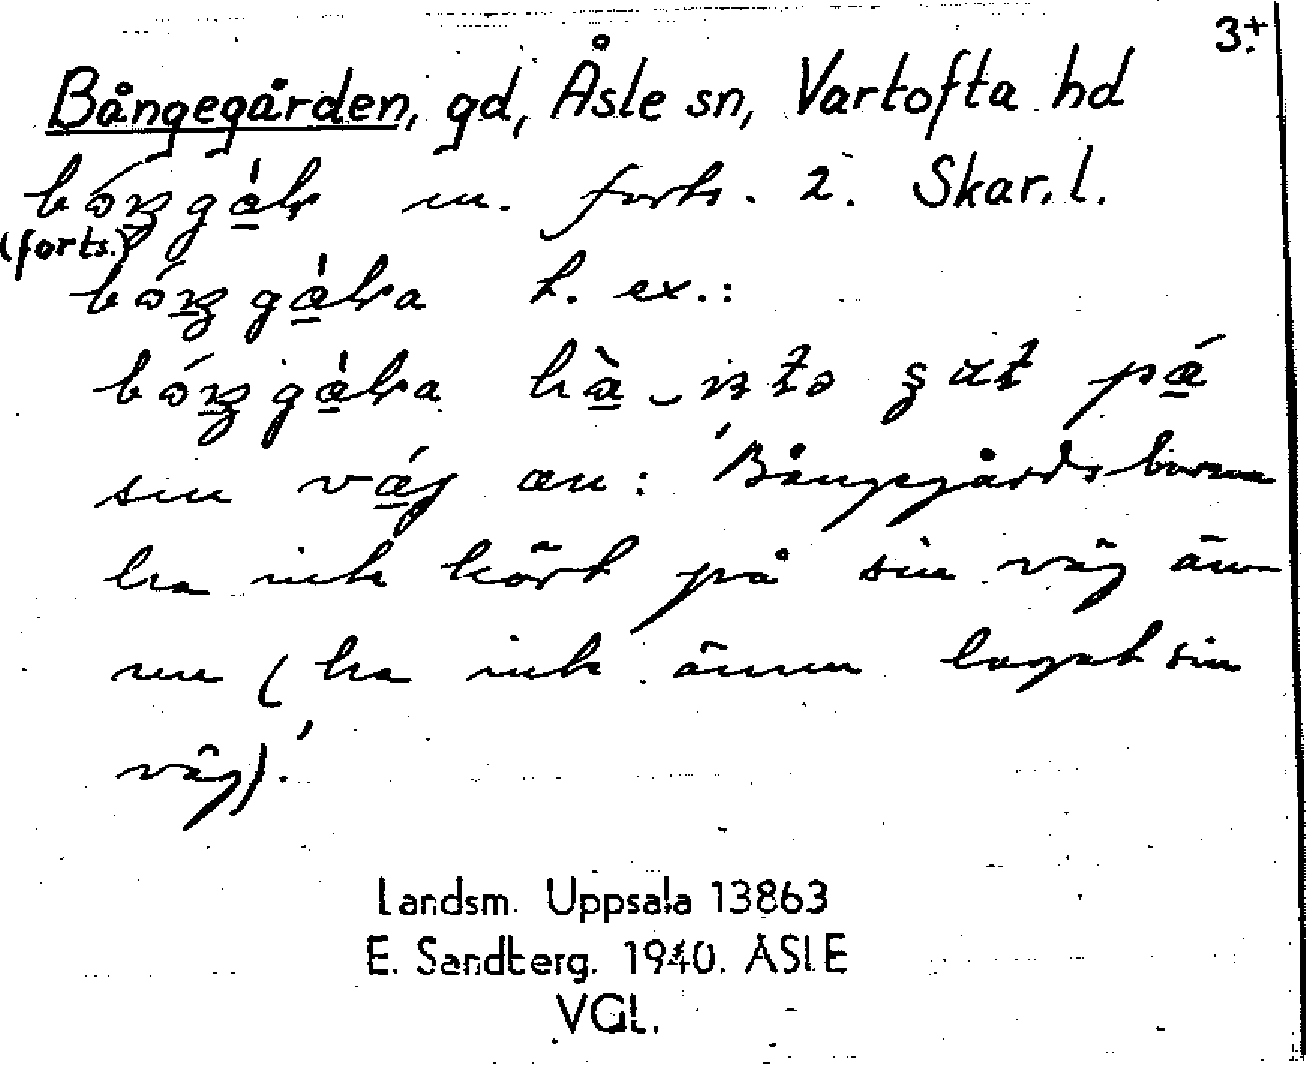 3.+
Bångegården, gd, Åsle sn, Vartofta hd
m. forts. 2. Skar. l.
(forts.)
t. ex.:
sin an: 'Bångegårdsborna
ha inte kört på sin väg än-
nu (ha inte ännu lagat sin
väg).'
Landsm. Uppsala 13863
E. Sandberg. 1940. ÅSLE
VGL.